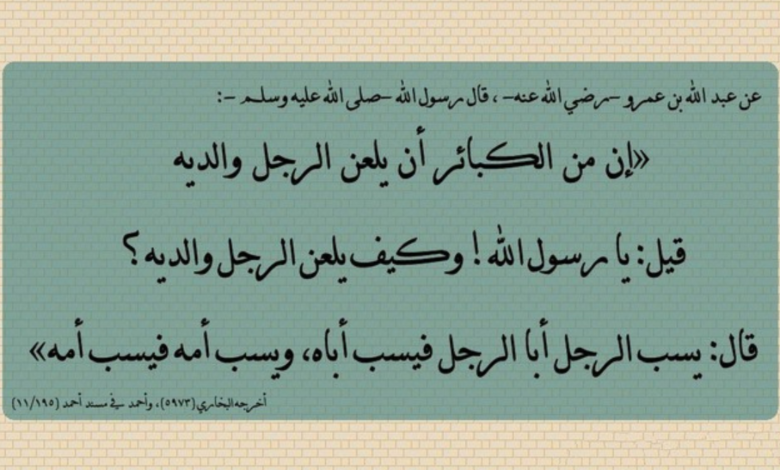 عن عبد الله بن عمرو –رضي الله عنه– ، قال رسول الله –صلى الله عليه وسلم –:
«إن من الكبائر أن يلعن الرجل والديه
قيل: يا رسول الله! وكيف يلعن الرجل والديه؟
قال: يسب الرجل أبا الرجل فيسب أباه، ويسب أمه فيسب أمه»
أخرجه البخاري (٥٩٧٣)، وأحمد في مسند أحمد (١١/١٩٥)